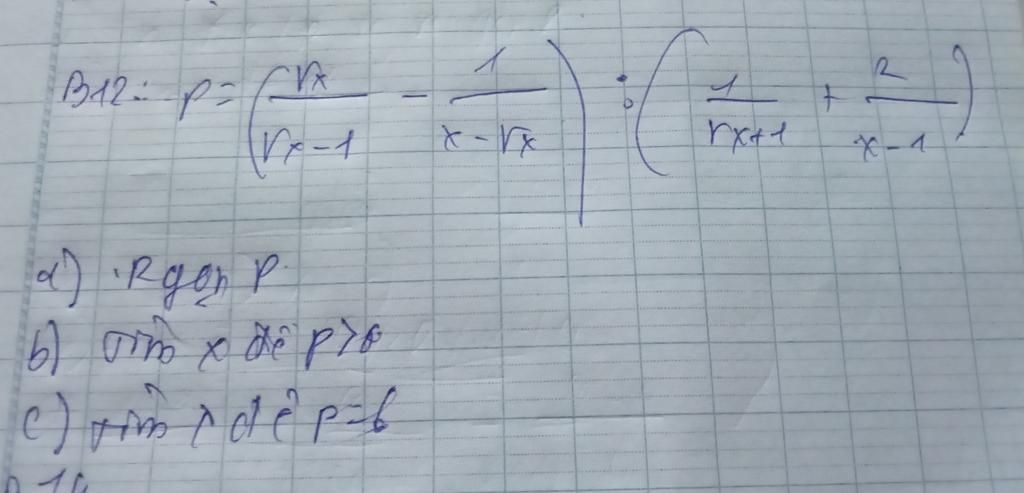 B12: P = (√x / (√x - 1) - 1 / (x - √x)) : (1 / (√x + 1) + 2 / (x - 1))
a) R gọn P.
b) tìm x để P >
c) tìm x để P = 6